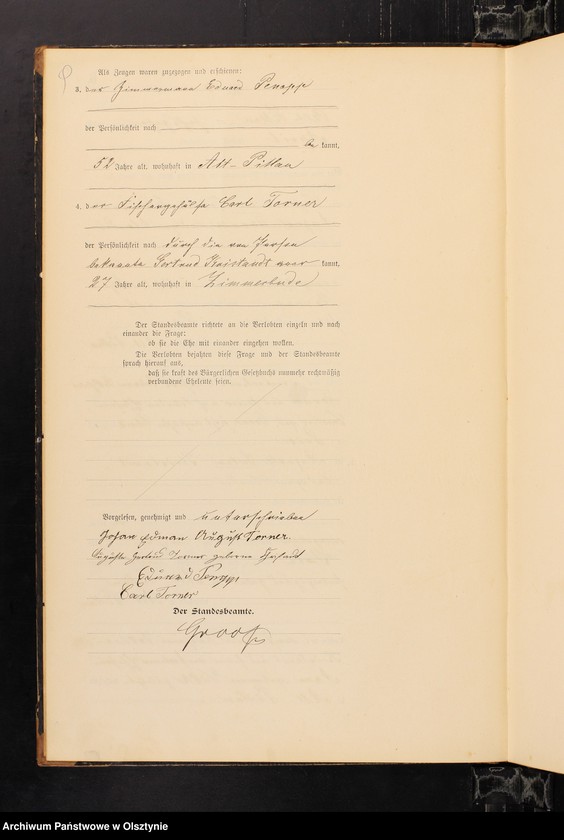 Als Zeugen waren zugezogen und erschienen:
3. der Zimmermann Eduard
der Persönlichkeit nach
be kannt,
52 Jahre alt, wohnhaft in Alt-Pillau
4. der Fischergehülfe Carl Torner
der Persönlichkeit nach durch die von Person
bekannte kannt,
27 Jahre alt, wohnhaft in Zimmerbude
Der Standesbeamte richtete an die Verlobten einzeln und nach
einander die Frage:
ob sie die Ehe mit einander eingehen wollen.
Die Verlobten bejahten diese Frage und der Standesbeamte
sprach hierauf aus,
daß sie kraft des Bürgerlichen Gesetzbuchs nunmehr rechtmäßig
verbundene Eheleute seien.
Vorgelesen, genehmigt und unterschrieben
August Torner.
Torner geborne
Eduard
Carl Torner
Der Standesbeamte.
Archiwum Państwowe w Olsztynie